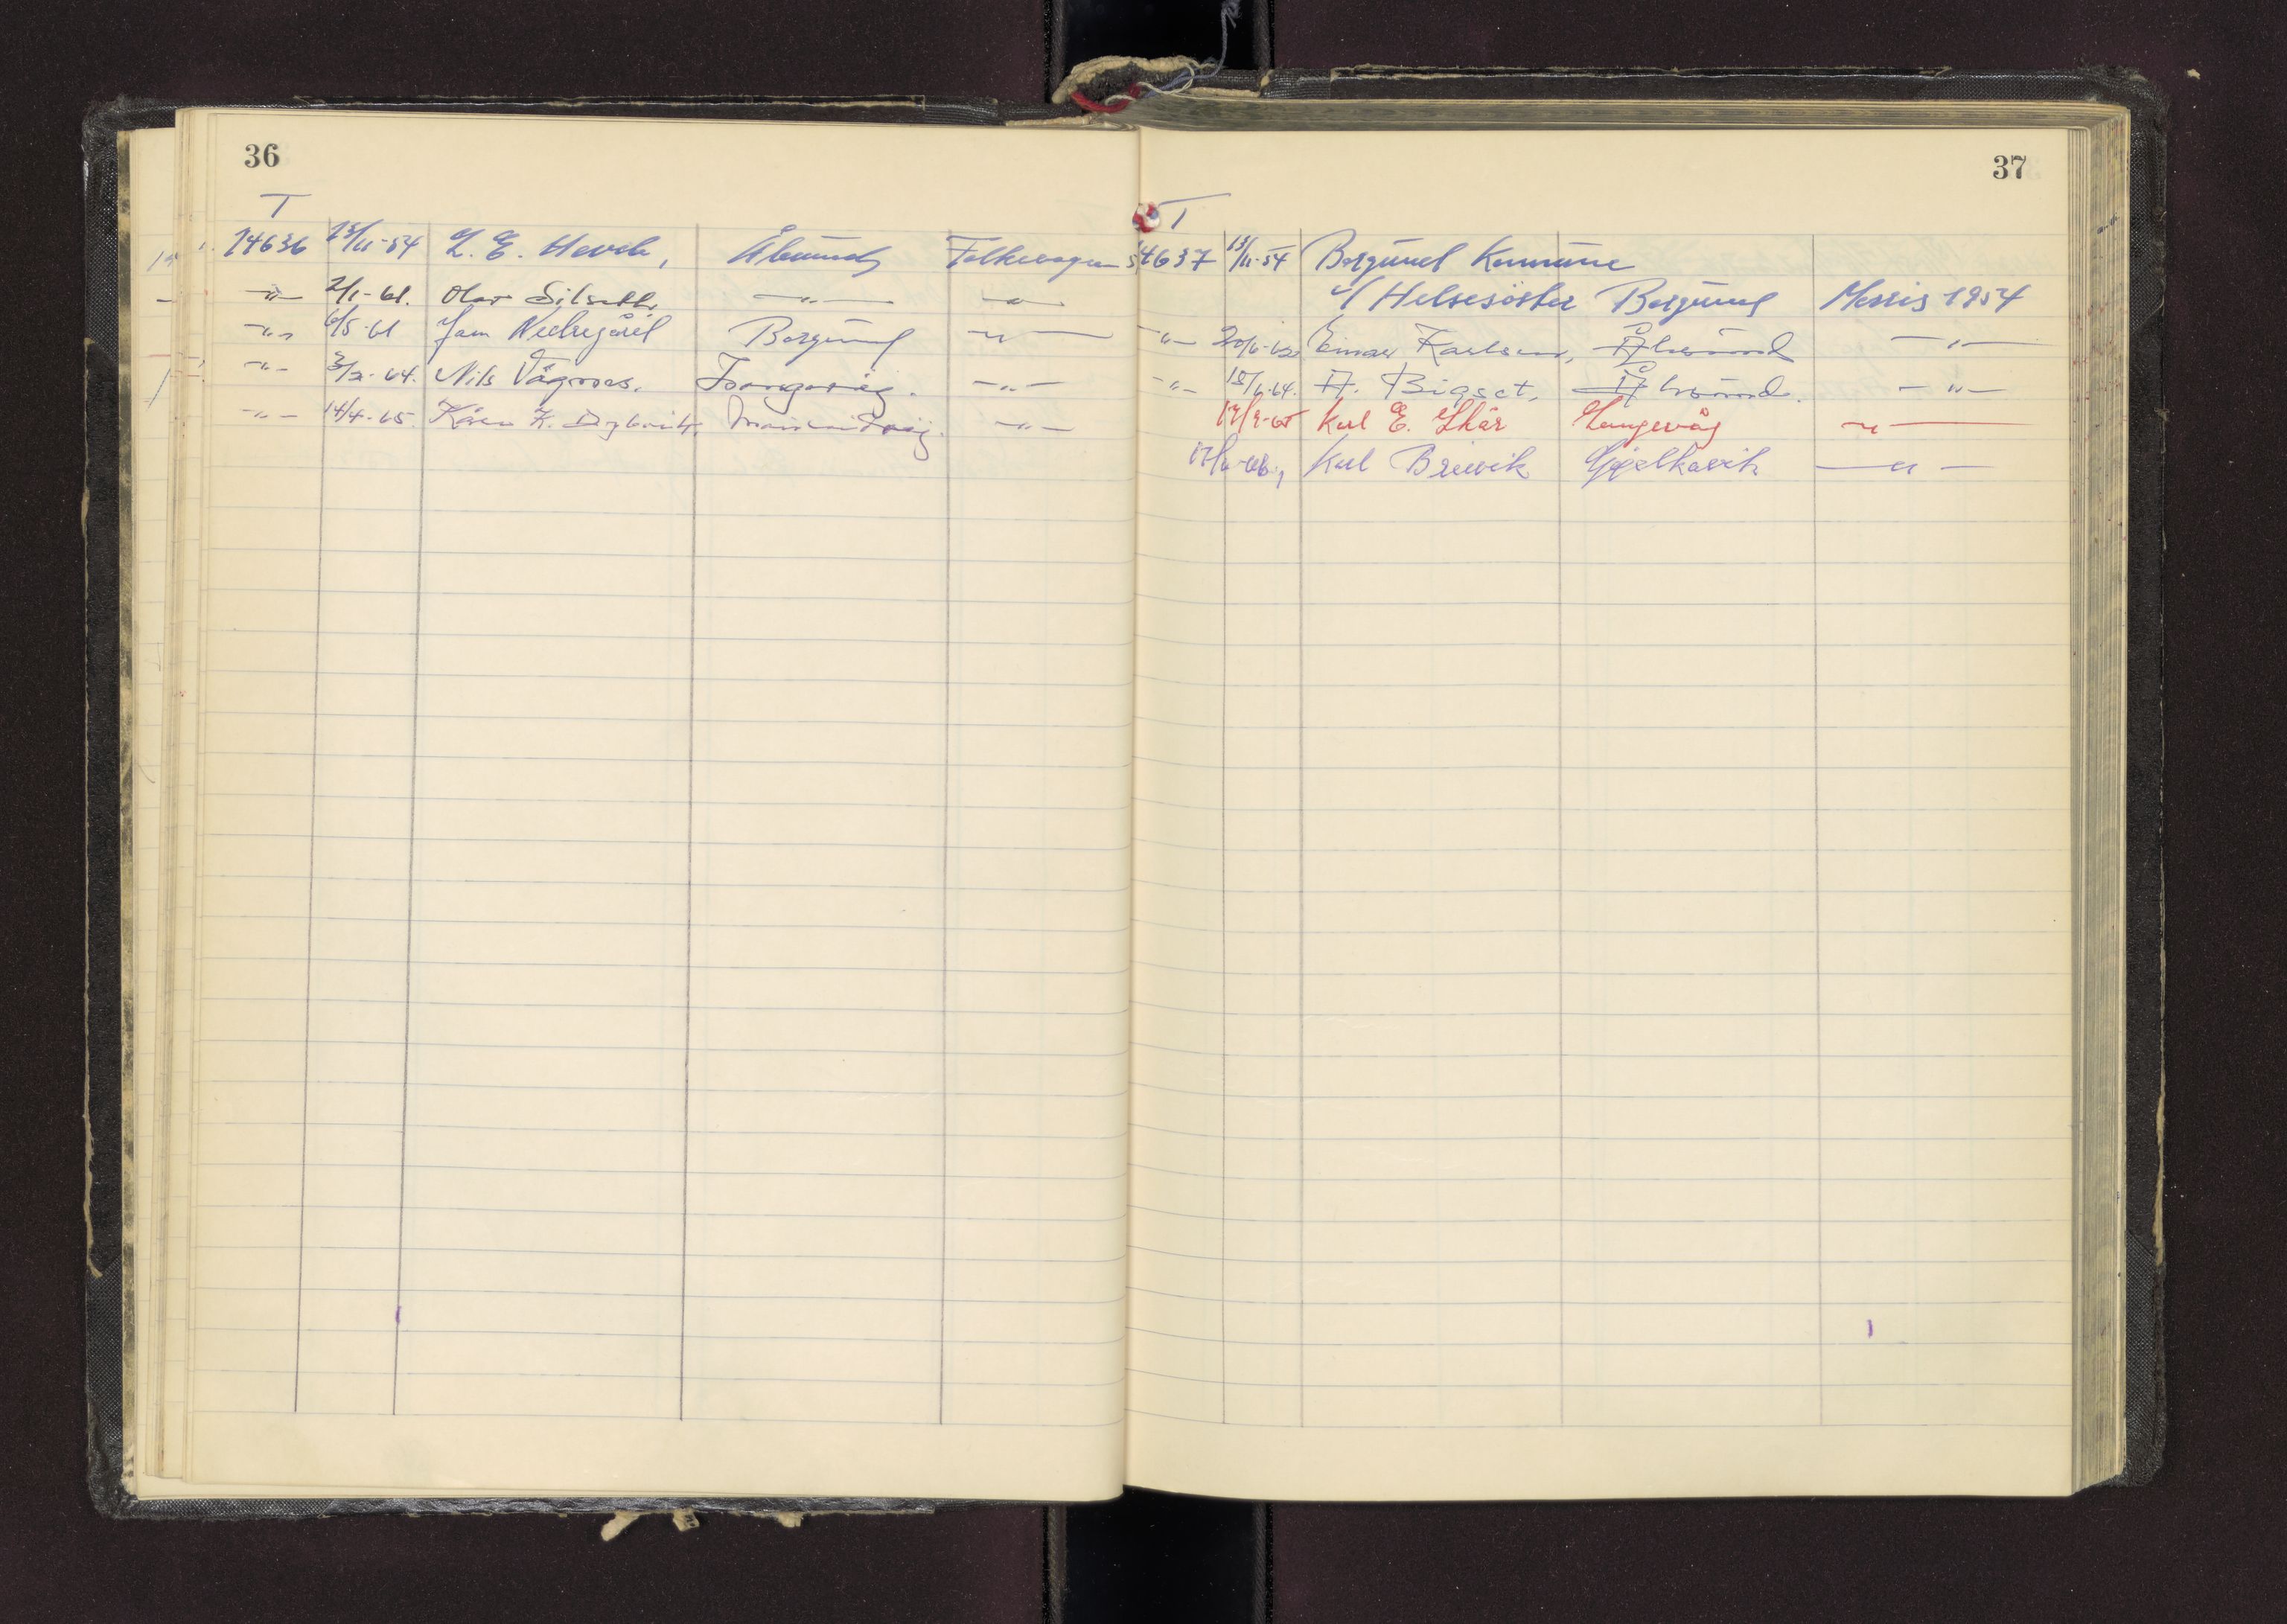 36
T
14636 13/11-54 L. E. Hevle, Ålesund Folkevogn 5
-"- 2/1-61. Olav Silseth, -"- -"-
-"- 6/5-61 Jan Nedregård Borgund -"-
-"- 3/2-64. Nils Vågnes. Tvangsvåg. -"-
-"- 14/4-65 Kåre K. Dybvik, -"-
37
T
14637 13/11-54 Borgund Kommune
v/ Helsesöster Borgund Morris 1954
-"- 20/6-62 Einar Karlsen, Ålesund -"-
-"- 18/6-64. A. Bigset, Ålesund. -"-
17/9-65 Karl E. Skår Langevåg -"-
17/6-66, Karl Breivik Gjelkavik -"-